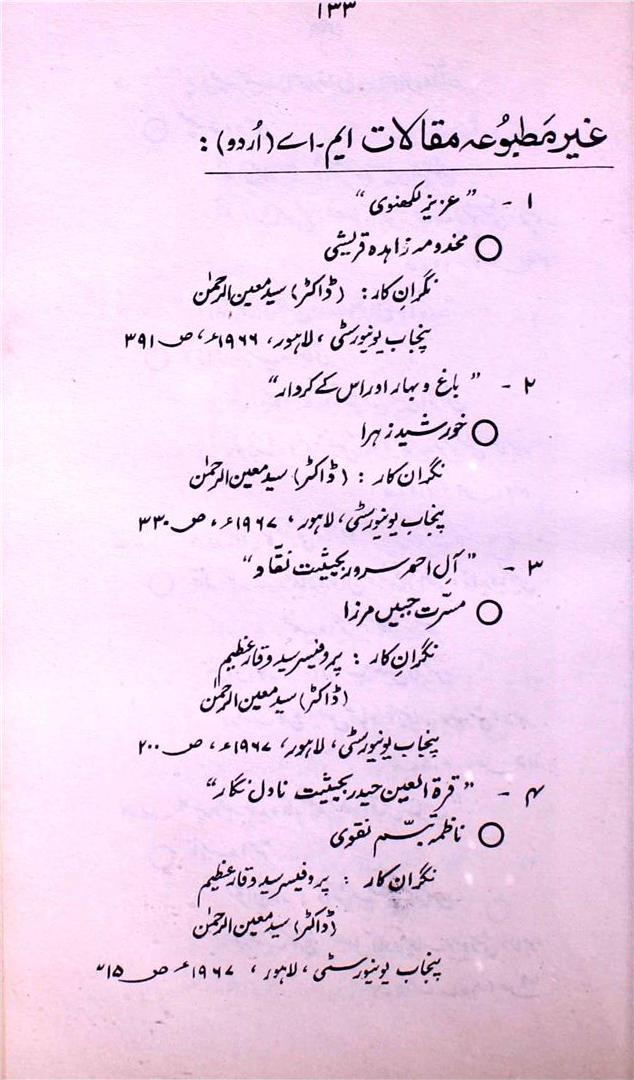 ۱۳۳
غیر مَطبوُعہ مقالات ایم۔اے (اُردو) :
۱ - ”عزیز لکھنوی“
○ مخدومہ زاہدہ قریشی
نگران کار : (ڈاکٹر) سید معین الرحمٰن
پنجاب یونیورسٹی ، لاہور ، ۱۹۶۶ء ، ص ۳۹۱
۲ - ”باغ و بہار اور اس کے کردار“
○ خورشید زہرا
نگران کار : (ڈاکٹر) سید معین الرحمٰن
پنجاب یونیورسٹی ، لاہور ، ۱۹۶۷ء ، ص ۳۳۰
۳ - ”آلِ احمد سرور بحیثیت نقّاد“
○ مسرّت جبیں مرزا
نگرانِ کار : پروفیسر سید وقار عظیم
(ڈاکٹر) سید معین الرحمٰن
پنجاب یونیورسٹی ، لاہور ، ۱۹۶۷ء ، ص ۲۰۰
۴ - ”قرۃ العین حیدر بحیثیت ناول نگار“
○ ناظمہ تبسّم نقوی
نگران کار : پروفیسر سید وقار عظیم
(ڈاکٹر) سید معین الرحمٰن
پنجاب یونیورسٹی ، لاہور ، ۱۹۶۷ء ص